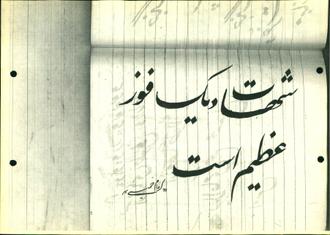 شهادت یک فوز
عظیم است